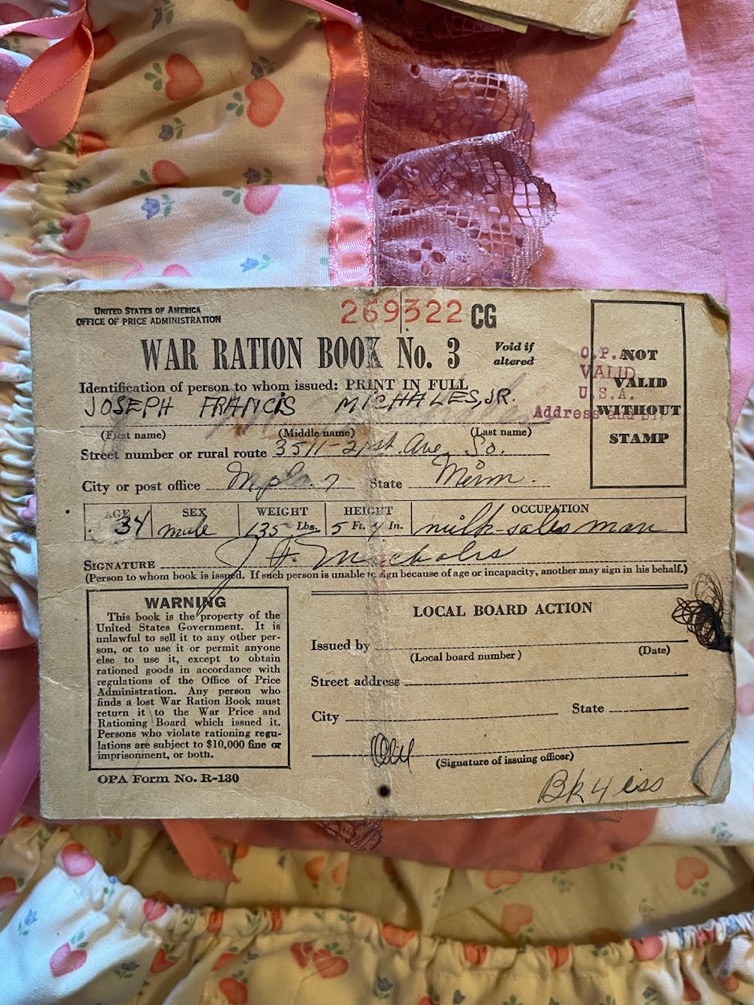 UNITED STATES OF AMERICA
OFFICE OF PRICE ADMINISTRATION
269322 CG
WAR RATION BOOK No. 3
Void if
altered
Identification of person to whom issued: PRINT IN FULL
JOSEPH FRANCIS MICHALES, JR.
(First name) (Middle name) (Last name)
Street number or rural route 3511-21st. Ave. So.
City or post office Mpls. 7 State Minn.
O.P.A.
VALID
U.S.A.
Address and
NOT
VALID
WITHOUT
STAMP
AGE SEX WEIGHT HEIGHT OCCUPATION
34 male 135 Lbs. 5 Ft. 4 In. milk-sales man
SIGNATURE J. F. Michales
(Person to whom book is issued. If such person is unable to sign because of age or incapacity, another may sign in his behalf.)
WARNING
This book is the property of the
United States Government. It is
unlawful to sell it to any other per-
son, or to use it or permit anyone
else to use it, except to obtain
rationed goods in accordance with
regulations of the Office of Price
Administration. Any person who
finds a lost War Ration Book must
return it to the War Price and
Rationing Board which issued it.
Persons who violate rationing regu-
lations are subject to $10,000 fine or
imprisonment, or both.
OPA Form No. R-130
LOCAL BOARD ACTION
Issued by
(Local board number) (Date)
Street address
City State
(Signature of issuing officer)
Bk 4 iss